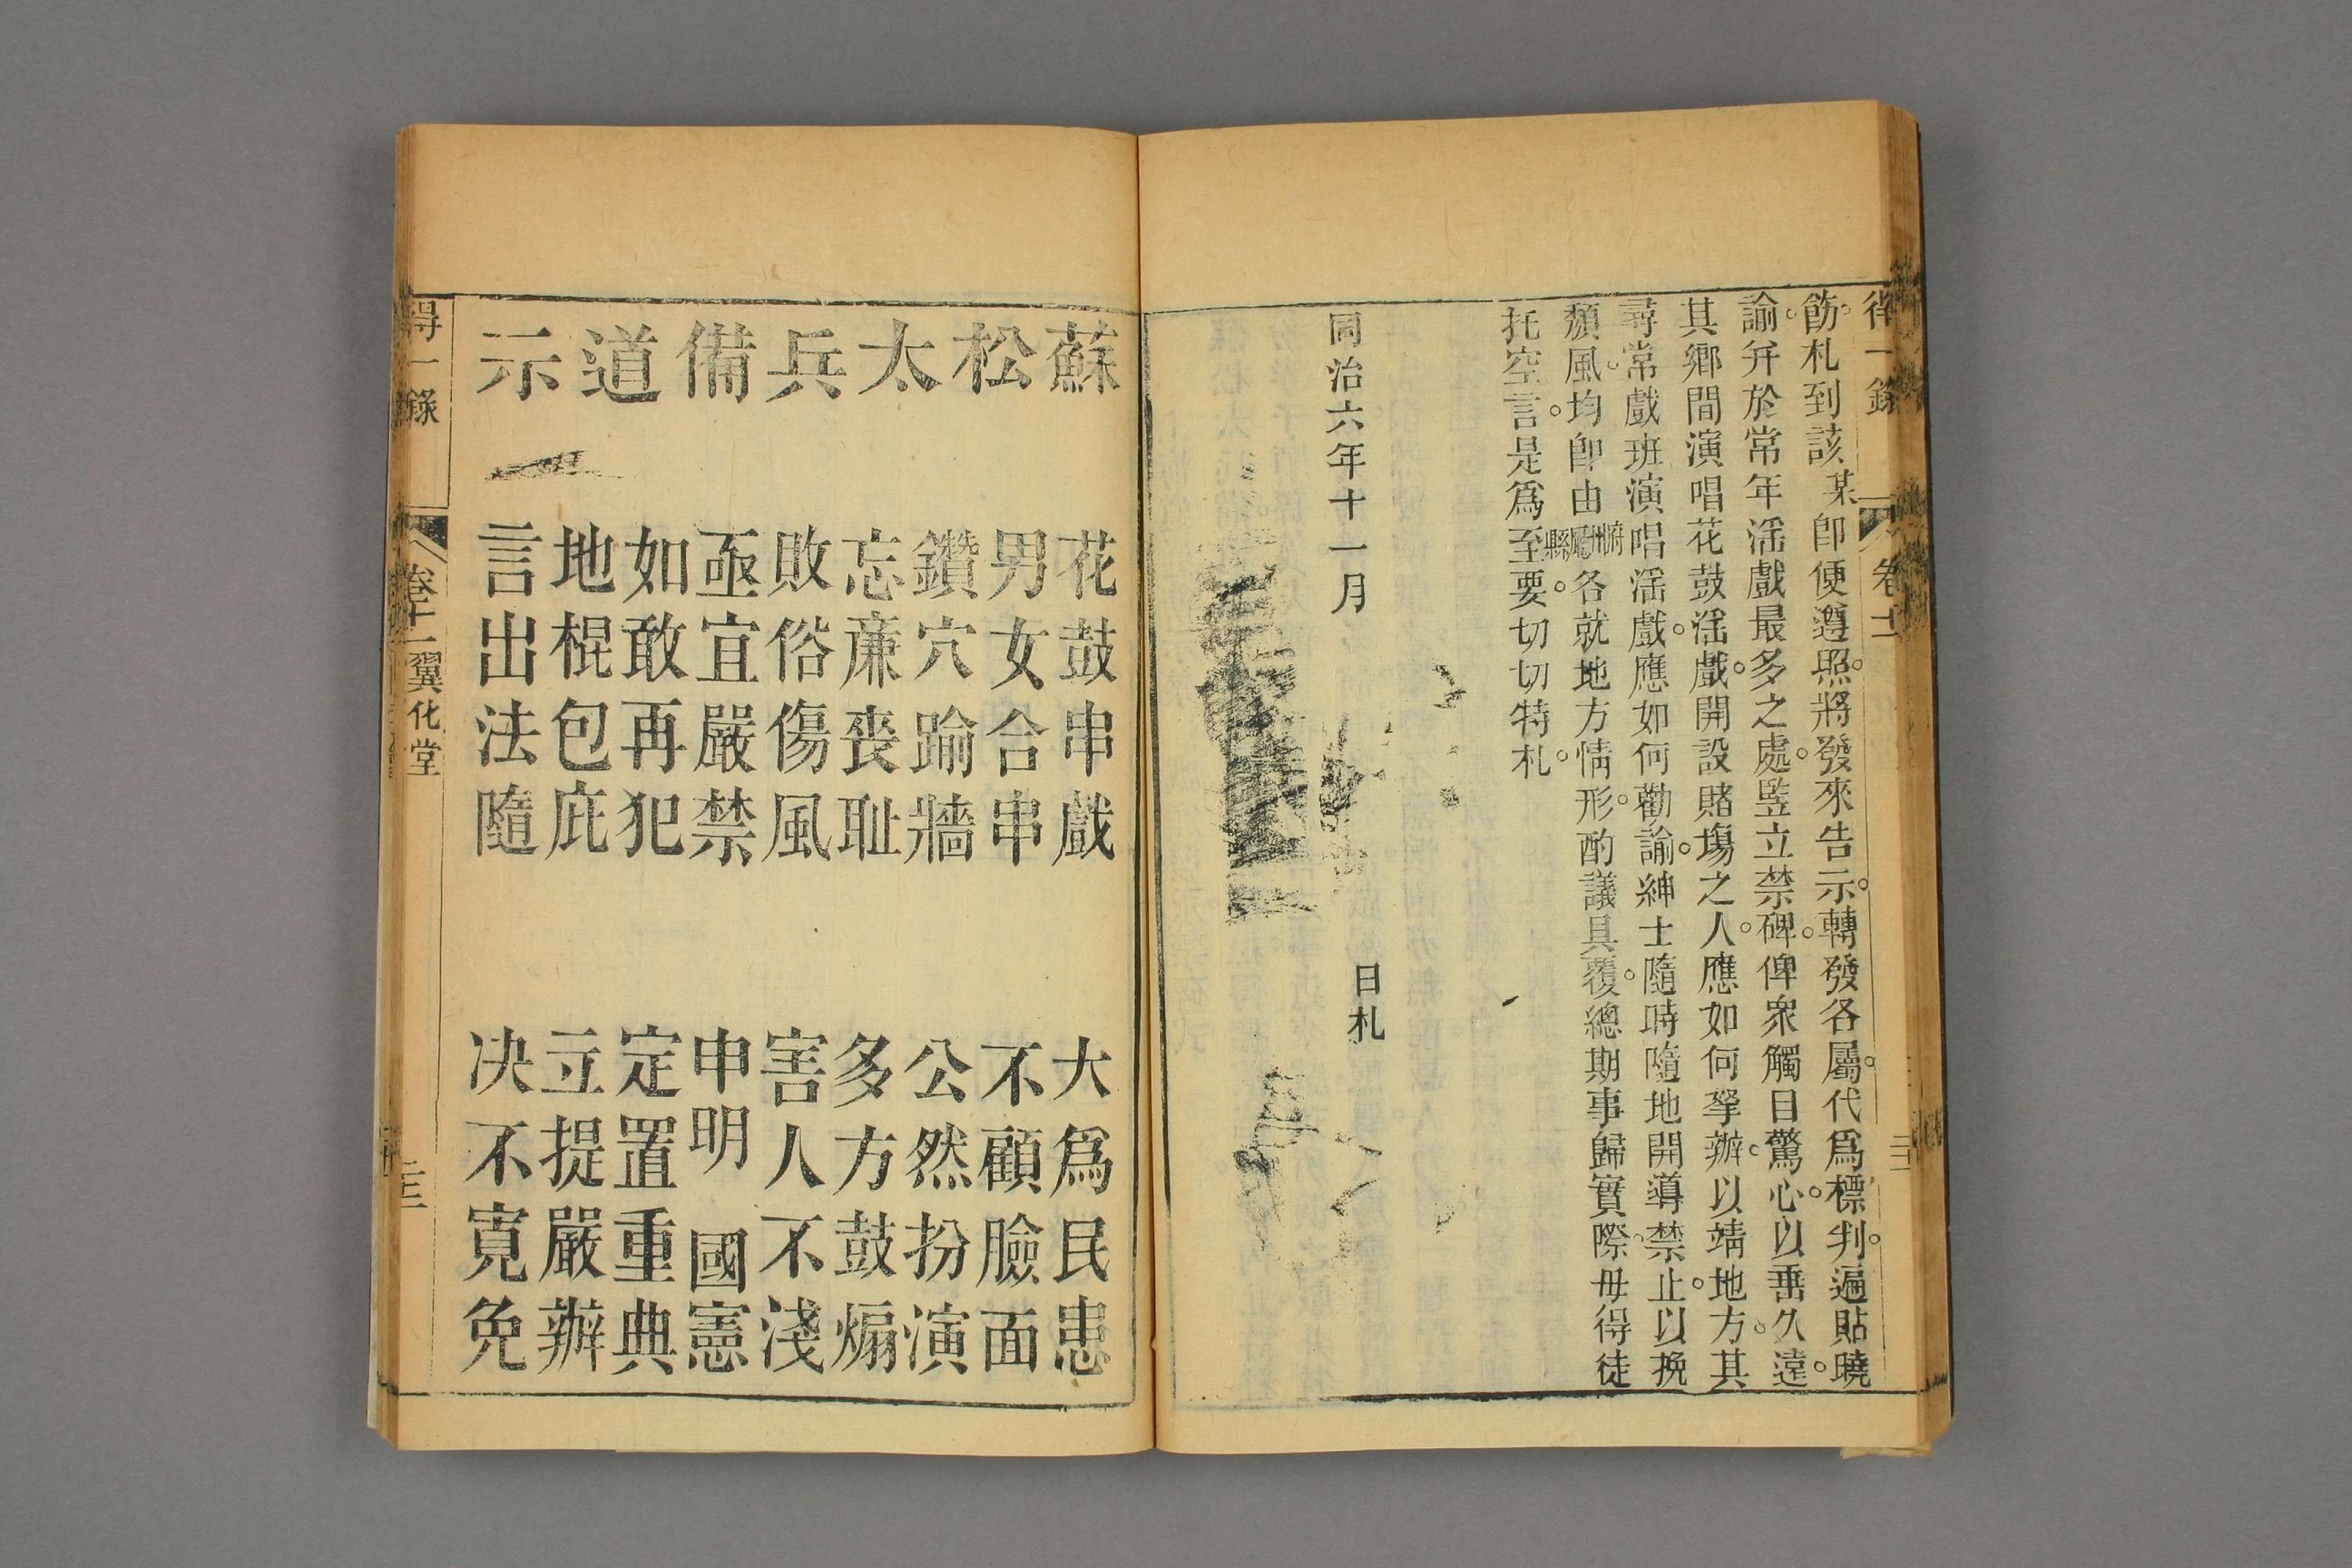 得一錄 卷十一
飭札到該某卽便遵照將發來告示轉發各屬代爲標判遍貼曉
諭幷於常年淫戲最多之處竪立禁碑俾衆觸目驚心以垂久遠
其鄉間演唱花鼓淫戲開設賭塲之人應如何拏辦以靖地方其
尋常戲班演唱淫戲應如何勸諭紳士隨時隨地開導禁止以挽
頹風均卽由府州廳縣各就地方情形酌議具覆總期事歸實際毋得徒
托空言是爲至要切切特札
同治六年十一月 日札
蘇松太兵備道示
花鼓串戲 大爲民患
男女合串 不顧臉面
鑽穴踰牆 公然扮演
忘廉喪耻 多方鼓煽
敗俗傷風 害人不淺
亟宜嚴禁 申明國憲
如敢再犯 定置重典
地棍包庇 立提嚴辦
言出法隨 决不寬免
得一錄 卷十一 翼化堂